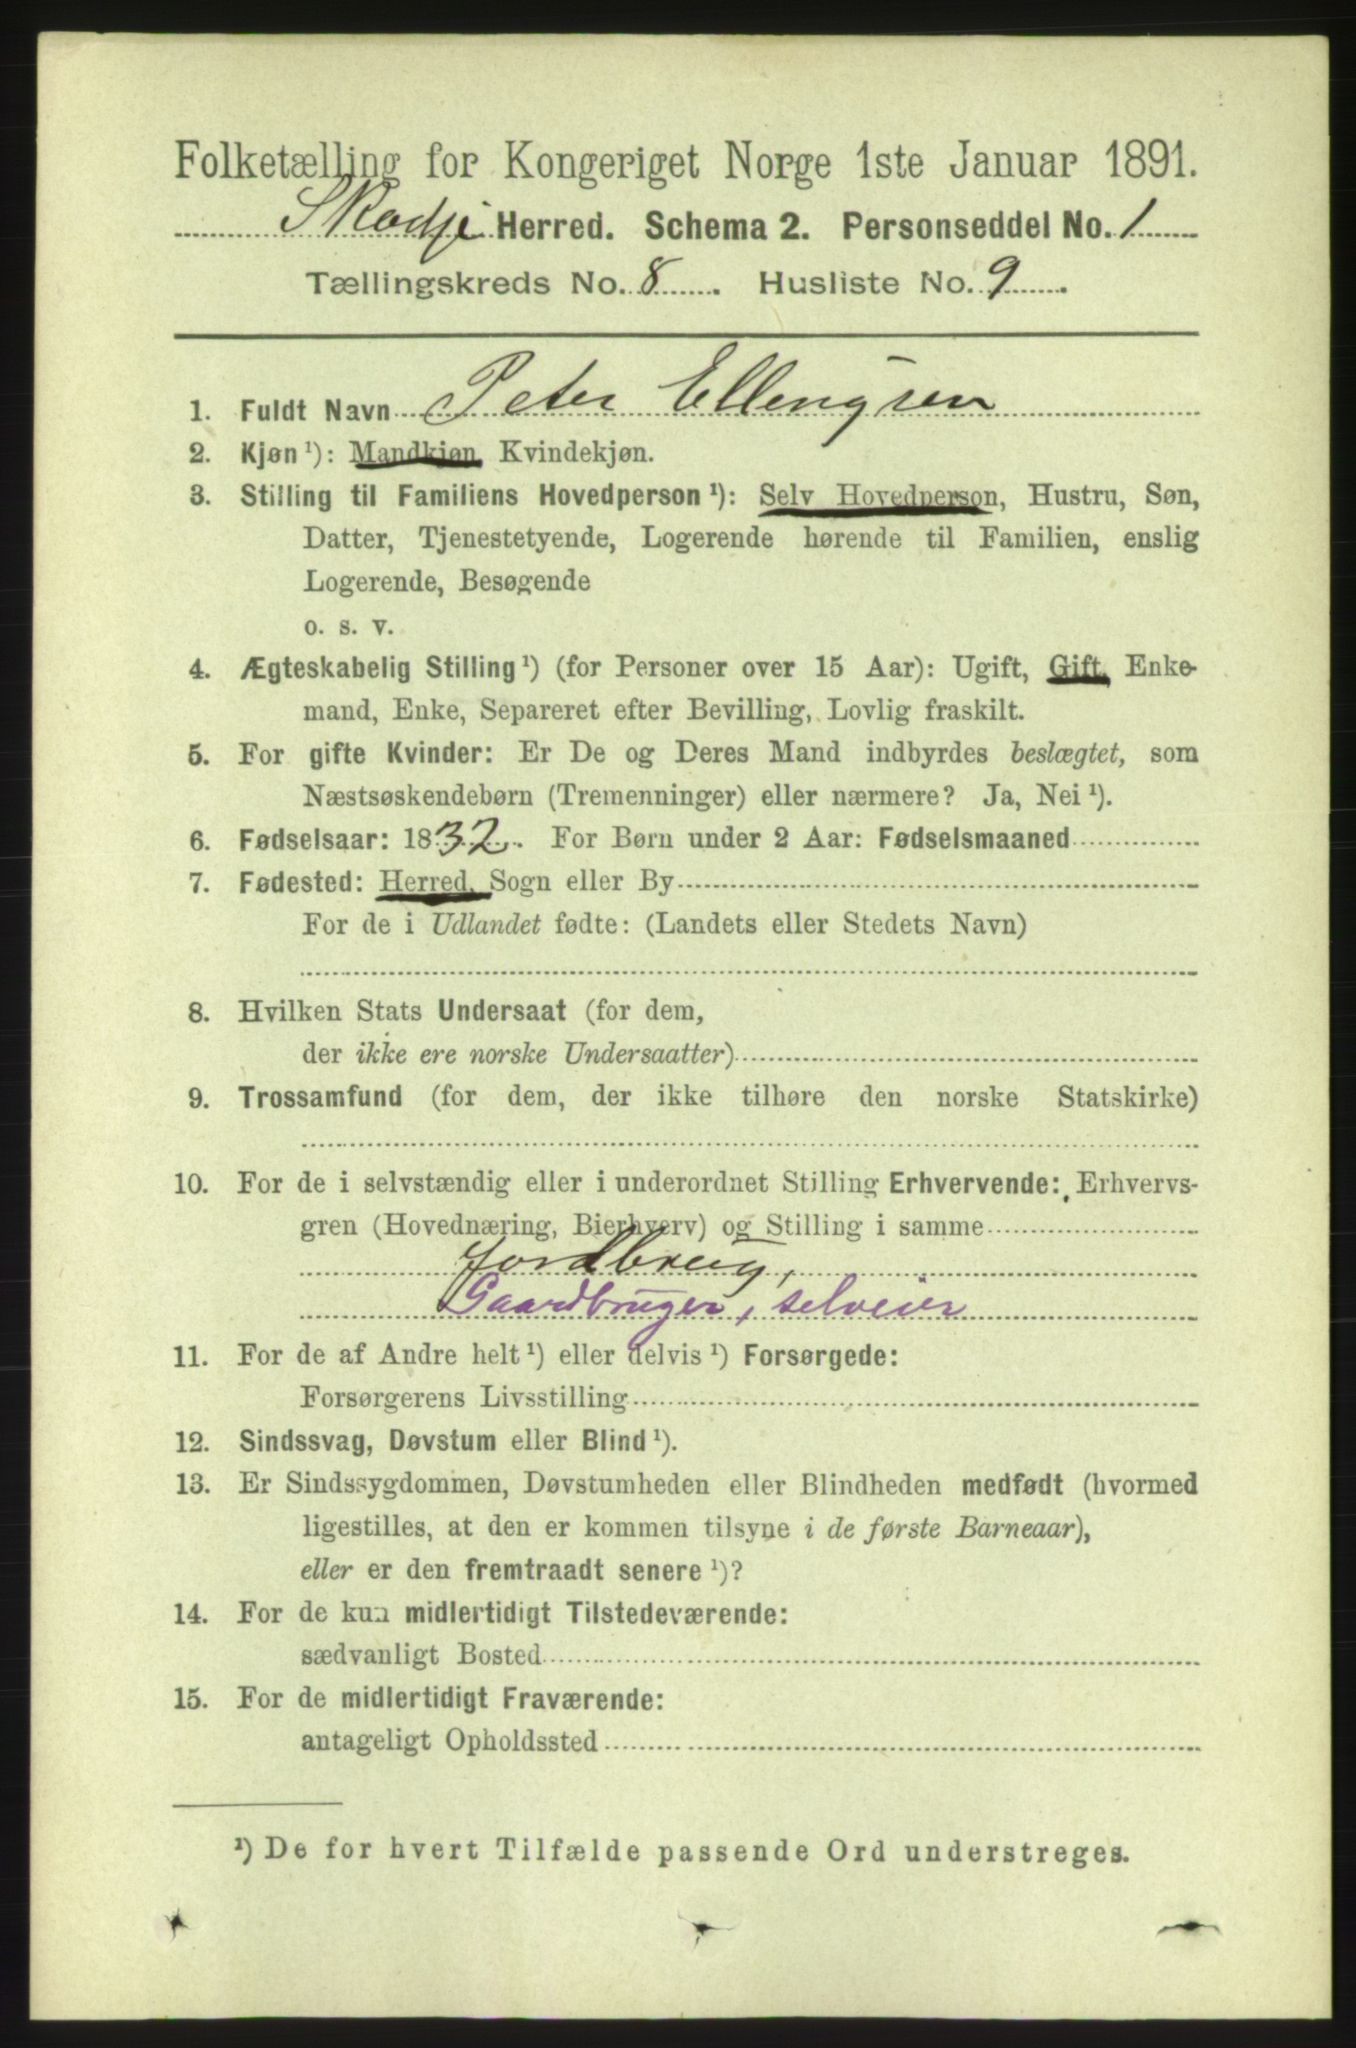 Folketælling for Kongeriget Norge 1ste Januar 1891.
Skodje Herred. Schema 2. Personseddel No. 1
Tællingskreds No. 8. Husliste No. 9.
1. Fuldt Navn Peter Ellengsen
2. Kjøn ¹): Mandkjøn, Kvindekjøn.
3. Stilling til Familiens Hovedperson ¹): Selv Hovedperson, Hustru, Søn,
Datter, Tjenestetyende, Logerende hørende til Familien, enslig
Logerende, Besøgende
o. s. v.
4. Ægteskabelig Stilling ¹) (for Personer over 15 Aar): Ugift, Gift, Enke-
mand, Enke, Separeret efter Bevilling, Lovlig fraskilt.
5. For gifte Kvinder: Er De og Deres Mand indbyrdes beslægtet, som
Næstsøskendebørn (Tremenninger) eller nærmere? Ja, Nei ¹).
6. Fødselsaar: 1832. For Børn under 2 Aar: Fødselsmaaned
7. Fødested: Herred, Sogn eller By
For de i Udlandet fødte: (Landets eller Stedets Navn)
8. Hvilken Stats Undersaat (for dem,
der ikke ere norske Undersaatter)
9. Trossamfund (for dem, der ikke tilhøre den norske Statskirke)
10. For de i selvstændig eller i underordnet Stilling Erhvervende: Erhvervs-
gren (Hovednæring, Bierhverv) og Stilling i samme
Jordbrug,
Gaardbruger, selveier
11. For de af Andre helt ¹) eller delvis ¹) Forsørgede:
Forsørgerens Livsstilling
12. Sindssvag, Døvstum eller Blind ¹).
13. Er Sindssygdommen, Døvstumheden eller Blindheden medfødt (hvormed
ligestilles, at den er kommen tilsyne i de første Barneaar),
eller er den fremtraadt senere ¹)?
14. For de kun midlertidigt Tilstedeværende:
sædvanligt Bosted
15. For de midlertidigt Fraværende:
antageligt Opholdssted
¹) De for hvert Tilfælde passende Ord understreges.